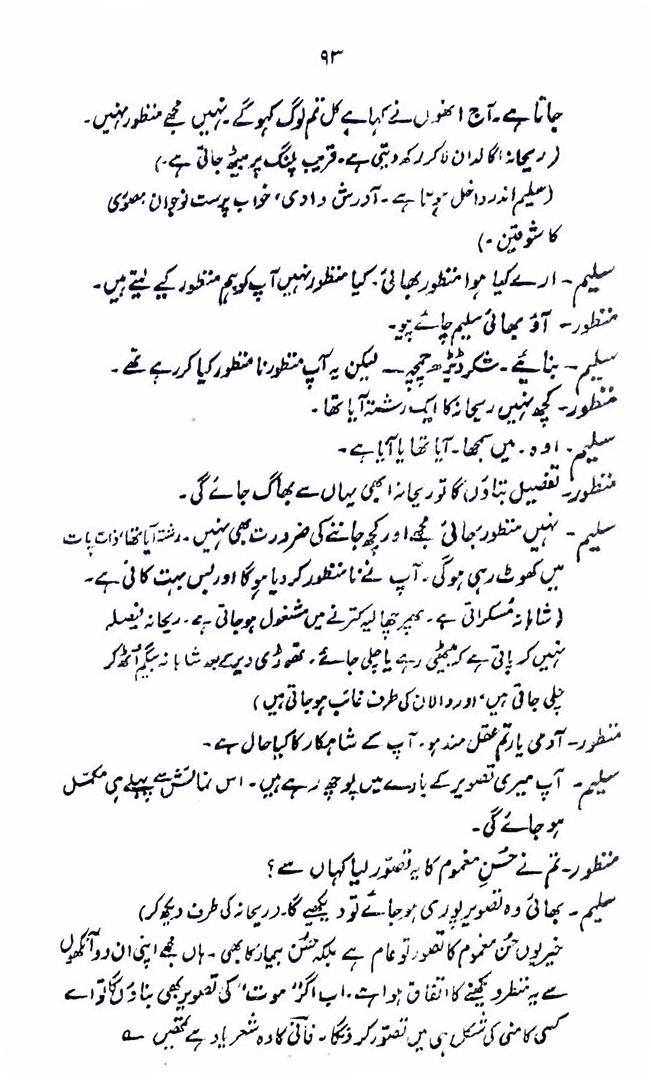 ۹۳
جاتا ہے۔ آج انھوں نے کہا ہے کل تم لوگ کہو گے۔ نہیں مجھے منظور نہیں۔
(ریحانہ اگالدان لاکر رکھ دیتی ہے۔ قریب پلنگ پر بیٹھ جاتی ہے۔)
(سلیم اندر داخل ہوتا ہے۔ آدرش وادی، خواب پرست نوجوان مصوری
کا شوقین۔)
سلیم۔ ارے کیا ہوا منظور بھائی۔ کیا منظور نہیں آپ کو ہم منظور کیے لیتے ہیں۔
منظور۔ آؤ بھائی سلیم چائے پیو۔
سلیم۔ بنائیے۔ شکر ڈیڑھ چمچہ۔ لیکن یہ آپ منظور نا منظور کیا کر رہے تھے۔
منظور۔ کچھ نہیں ریحانہ کا ایک رشتہ آیا تھا۔
سلیم۔ اوہ۔ میں سمجھا۔ آیا تھا یا آیا ہے۔
منظور۔ تفصیل بتاؤں گا تو ریحانہ ابھی یہاں سے بھاگ جائے گی۔
سلیم۔ نہیں منظور بھائی مجھے اور کچھ جاننے کی ضرورت بھی نہیں۔ رشتہ آیا تھا، ذات پات
میں کھوٹ رہی ہوگی۔ آپ نے نامنظور کر دیا ہوگا اور بس بہت کافی ہے۔
(شاہانہ مسکراتی ہے۔ پھر چھالیہ کترنے میں مشغول ہو جاتی ہے۔ ریحانہ فیصلہ
نہیں کر پاتی ہے کہ بیٹھی رہے یا چلی جائے۔ تھوڑی دیر کے بعد شاہانہ بیگم اٹھ کر
چلی جاتی ہیں، اور دالان کی طرف غائب ہو جاتی ہیں)
منظور۔ آدمی یار تم عقل مند ہو۔ آپ کے شاہکار کا کیا حال ہے۔
سلیم۔ آپ میری تصویر کے بارے میں پوچھ رہے ہیں۔ اس نمائش سے پہلے ہی مکمل
ہو جائے گی۔
منظور۔ تم نے حسنِ مغموم کا یہ تصوّر لیا کہاں سے؟
سلیم۔ بھائی وہ تصویر پوری ہو جائے تو دیکھیے گا۔ (ریحانہ کی طرف دیکھ کر)
خیر یوں حسن مغموم کا تصور تو عام ہے بلکہ حسن بیمار کا بھی۔ ہاں مجھے اپنی ان دو آنکھوں
سے یہ منظر دیکھنے کا اتفاق ہوا ہے۔ اب اگر "موت" کی تصویر کبھی بناؤں گا تو اسے
کسی کامنی کی شکل ہی میں تصور کروں گا۔ فانی کا وہ شعر یاد ہے تمھیں ؎